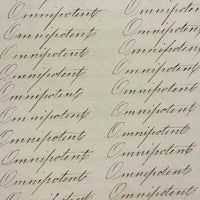 Omnipotent Omnipotent
Omnipotent Omnipotent
Omnipotent Omnipotent
Omnipotent Omnipotent
Omnipotent Omnipotent
Omnipotent Omnipotent
Omnipotent Omnipotent
Omnipotent Omnipotent
Omnipotent Omnipotent
Omnipotent Omnipotent